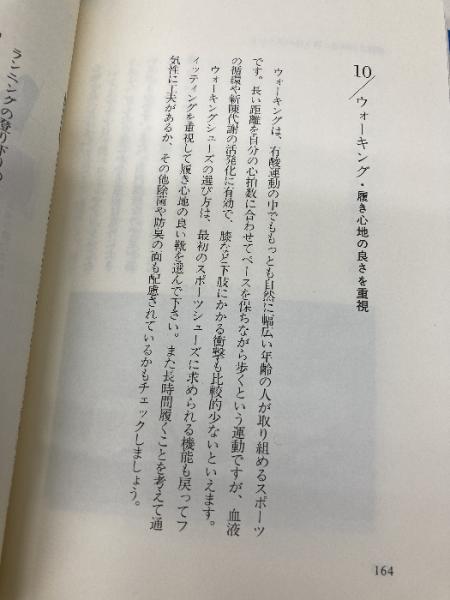 10／ウォーキング・履き心地の良さを重視
ウォーキングは、有酸運動の中でももっとも自然に幅広い年齢の人が取り組めるスポーツ
です。長い距離を自分の心拍数に合わせてペースを保ちながら歩くという運動ですが、血液
の循環や新陳代謝の活発化に有効で、膝など下肢にかかる衝撃も比較的少ないといえます。
ウォーキングシューズの選び方は、最初のスポーツシューズに求められる機能も戻ってフ
ィッティングを重視して履き心地の良い靴を選んで下さい。また長時間履くことを考えて通
気性に工夫があるか、その他除菌や防臭の面も配慮されているかもチェックしましょう。
164
ランニングの登り下りの